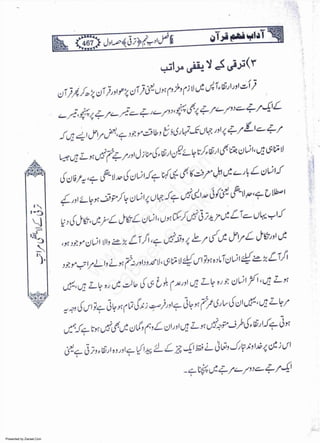 آداب فهم قرآن
467
۳) ترقی کے لا یقفی مراتب
قرأت اور ارتقاء آپس میں لازم و ملزوم ہوں یعنی قرآن پڑھو اور قرآن پڑھ کر پھر قرآن
کے ایک مرحلے سے دوسرے مرحلے پر بھی پہنچو، دوسرے مرحلے سے تیسرے مرحلے پر پہنچو، تیسرے
مرحلے سے اگلے مرحلے پر اور جہاں تک تمہاری طاقت موجود ہے، بعض مراحل ایسے ہیں کہ
لامتناہی ہیں، انسان جتنا بھی ارتقاء کرتا جائے لیکن ارتقاء کی منازل اور مرحلے ختم نہیں ہوتے ہیں جیسا
کہ انسان کے بارے میں اہل معرفت کا بھی یہی کہنا ہے کہ انسان کی حد لا یقفی ہے، یہ عرفان کی
اصطلاح ہے، حد لا یقفی یعنی کوئی حد ایسی نہیں ہے کہ جہاں پر انسان جا کر متوقف ہو جائے اور کہے
کہ اب یہاں سے آگے میں مزید ترقی نہیں کر سکتا ہوں، انسان کے تکامل کے سفر میں، تکامل کی دنیا
میں اور تکامل کے مراحل میں کسی مرحلے پر وقفہ نہیں ہے، اگر آگے بڑھنے والا انسان موجود ہو،
اگر آگے بڑھنے کیلئے انسان آمادہ ہو تو اس کیلئے لامتناہی، لامحدود اور نہ ختم ہونے والے مراتب موجود
ہیں، اکثر انسان جو رہ جاتے ہیں اور عدم بلوغ ہی کی حالت میں رہ جاتے ہیں، یہیں
مر جاتے ہیں، یہیں ان کی ساری عمر ختم ہو جاتی ہے اور فرصت زندگی تمام ہو جاتی ہے تو اس کی وجہ یہ
ہوتی ہے کہ ارتقاء کی طرف متوجہ نہیں ہوتے ہیں اور ان کے وہم و گمان میں بھی نہیں ہوتا ہے کہ ہمیں
اس زمین پر خداوند تبارک و تعالیٰ نے فقط ایک چیز کے لئے پیدا کیا ہے اور وہ ارتقاء و ترقی ہے یعنی
ایک مرحلے سے دوسرے مرحلے میں پہنچنا ہے۔
ترقی کے لا یقفی مراتب